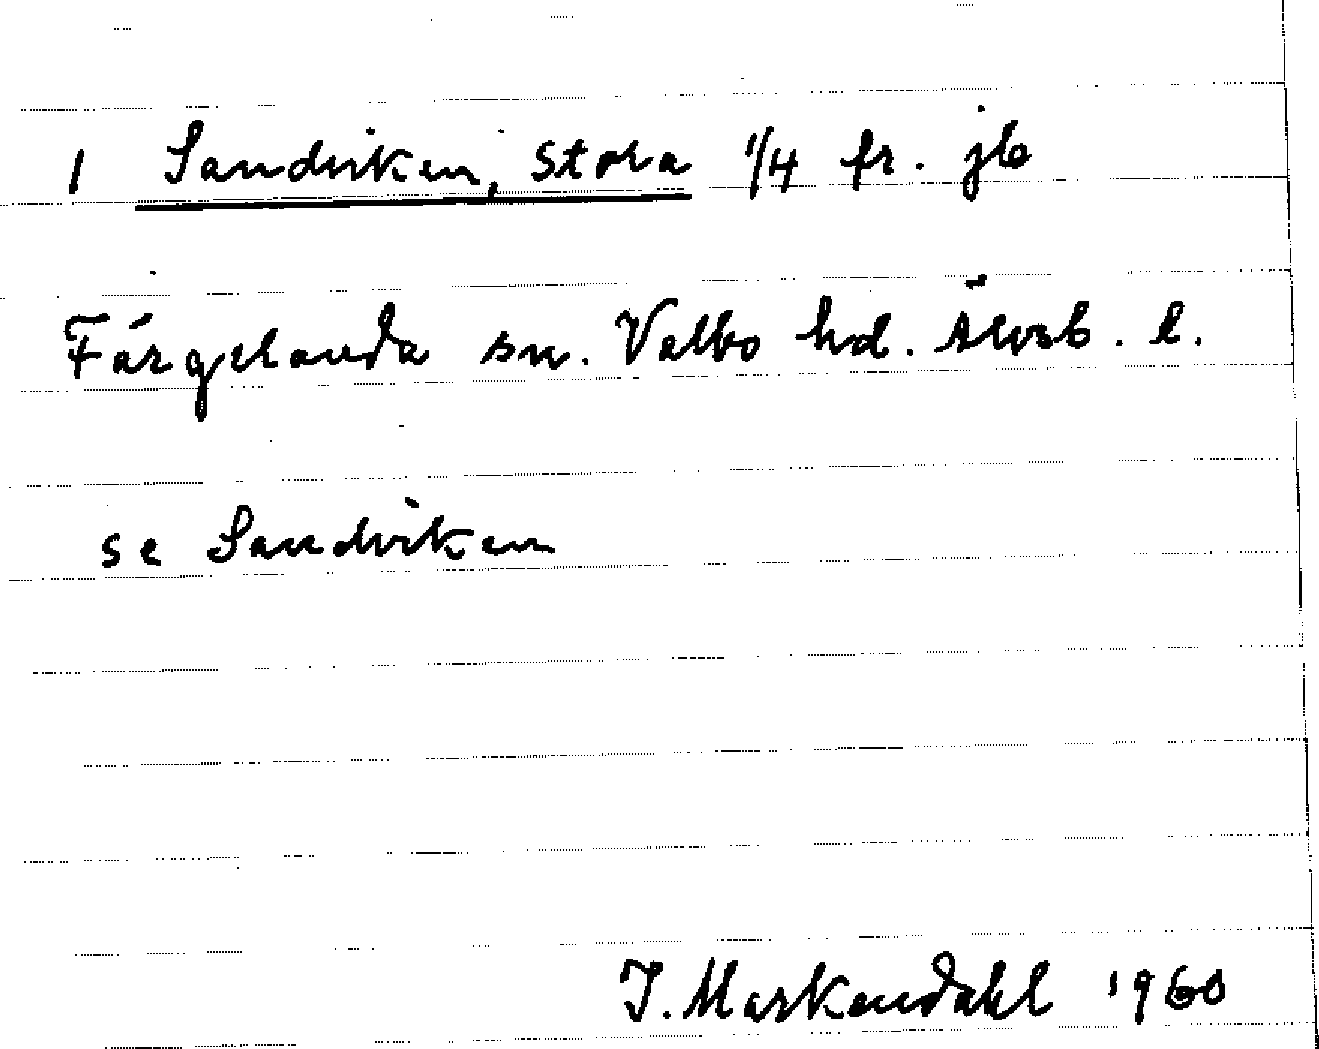 1 Sandviken, Stora 1/4 fr. jb
Färgelanda sn. Valbo hd. Älvsb. l.
se Sandviken
J. Markendahl 1960